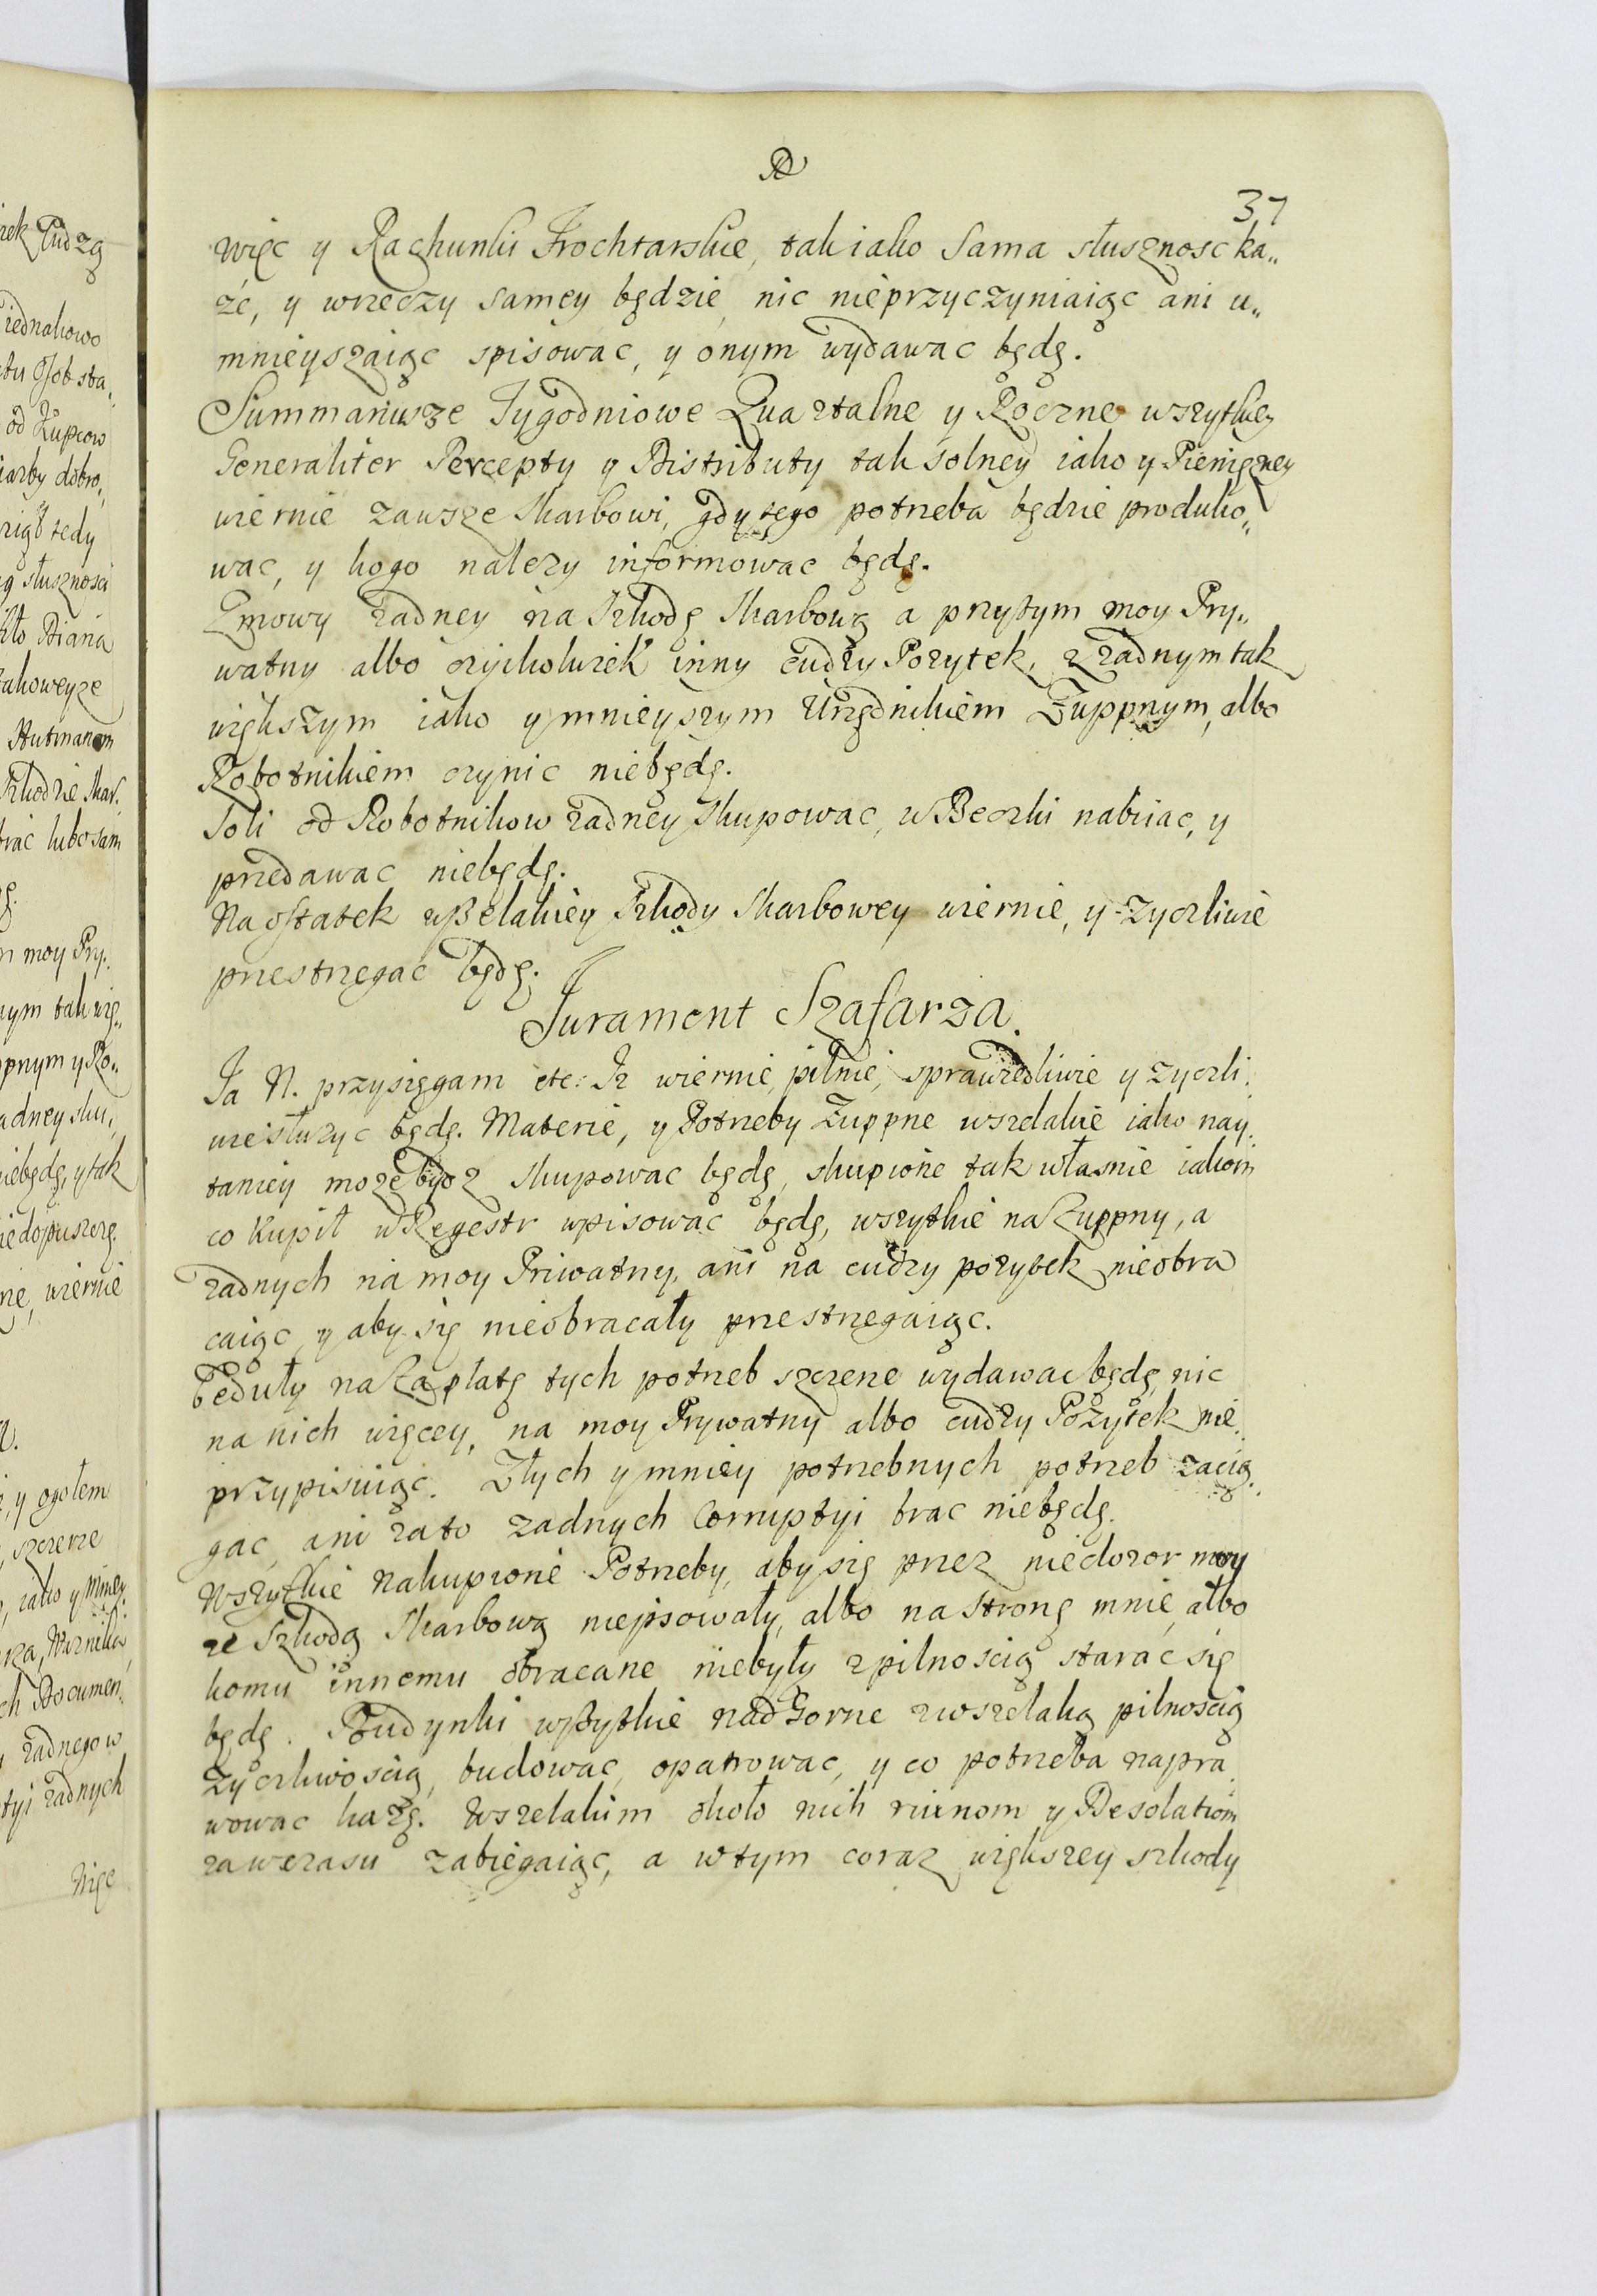 37
więc y Rachunki Trochtarskie, tak iako sama słusznosc ka„
że, y wrzeczy samey będzie, nic nieprzyczyniaiąc ani u„
mnieyszaiąc spisowac, y onym wydawac będę.
Summariusze Tygodniowe Quartalne y Roczne wszytkiey
Generaliter Percepty y Distributy tak solney iako y Pieniężney
wiernie zawsze Skarbowi, gdy tego potrzeba będzie produko„
wac, y kogo nalezy informowac będę.
Zmowy zadney na Szkodę Skarbową a przytym moy Pry„
watny albo czyikolwiek inny cudzy Pozytek, z zadnym tak
większym iako y mnieyszym Urzędnikiem Zuppnym, albo
Robotnikiem czynic niebędę.
Soli od Robotnikow zadney skupowac, w Beczki nabiiac, y
przedawac niebędę.
Na ostatek wszelakiey Szkody Skarbowey wiernie, y zyczliwie
przestrzegac będę.
Jurament Szafarza.
Ja N. przysięgam etc: Iz wiernie, pilnie, sprawiedliwie y zyczli„
wie słuzyc będę. Materie, y Potrzeby Zuppne wszelakie iako nay„
taniey moze bydz skupowac będę, skupione tak własnie iakom
co kupił w Regestr wpisowac będę, wszytkie na Zuppny, a
zadnych na moy Priwatny, ani na cudzy pozytek nieobra
caiąc, y aby się nieobracały przestrzegaiąc.
Ceduły na Zapłatę tych potrzeb szczerze wydawac będę, nic
na nich więcey, na moy Prywatny albo cudzy Pożytek nie„
przypisuiąc. Złych y mniey potrzebnych potrzeb zacią„
gac, ani za to zadnych Corruptyi brac niebędę.
Wszytkie nakupione Potrzeby, aby się przez niedozor moy
ze Szkodą Skarbową niepsowały, albo na stronę mnie, albo
komu innemu obracane niebyły z pilnoscią starać się
będę. Budynki wszytkie nad Gorne z wszelaką pilnoscią
zyczliwoscią, budowac, opatrowac, y co potrzeba napra„
wowac każę. Wszelakim około nich ruinom y Desolatiom
zawczasu zabiegaiąc, a w tym coraz większey szkody